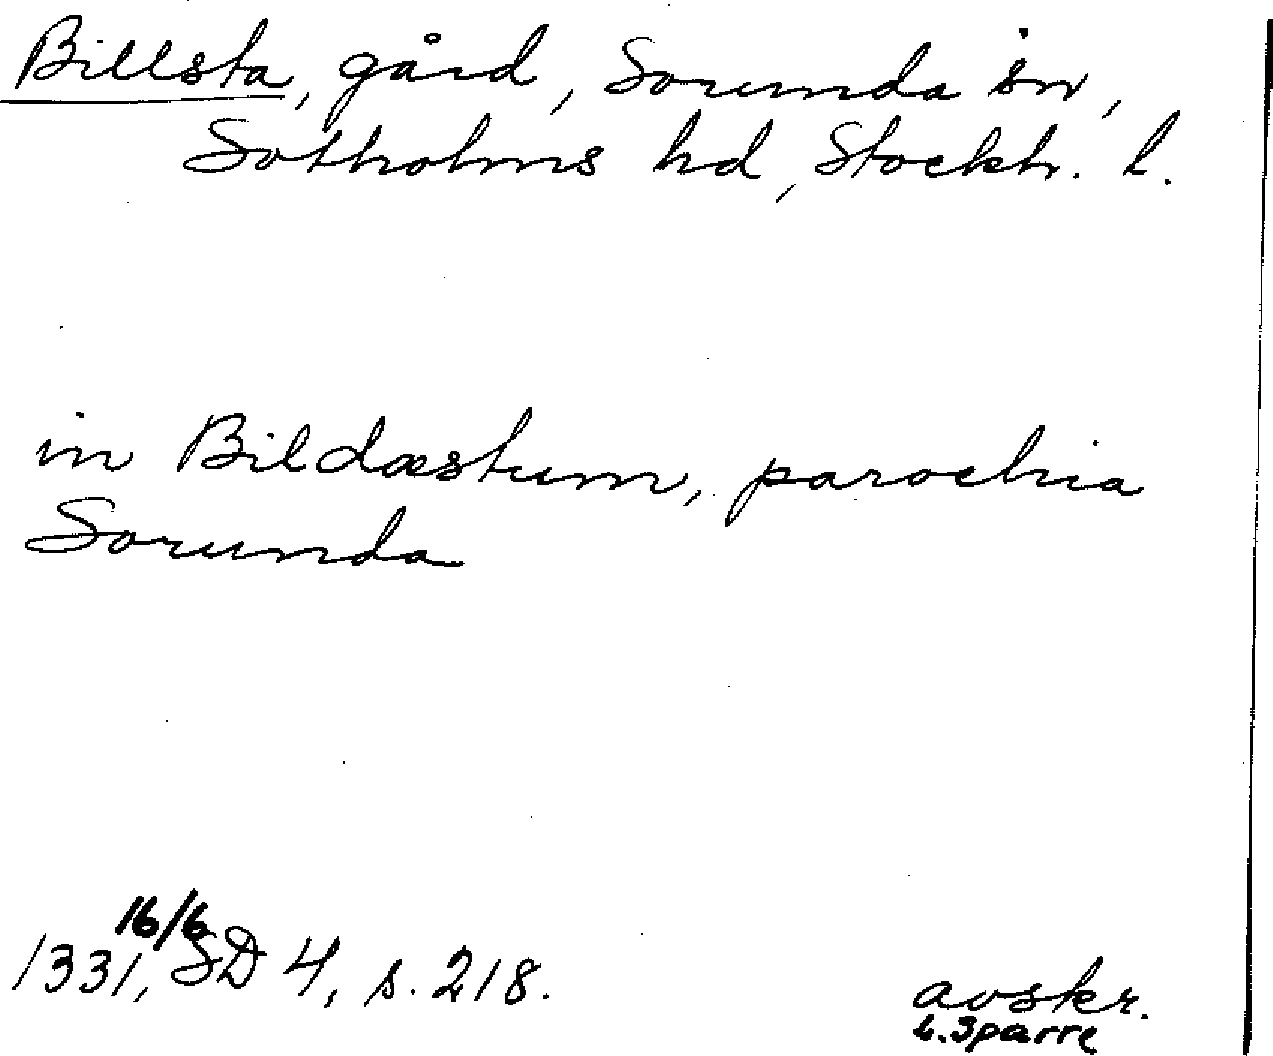 Billsta, gård, Sorunda sn,
Sotholms hd, Stockh. l.
in Bildæstum, parochia
Sorunda
16/6
1331, SD 4, s. 218.
avskr.
L. Sparre